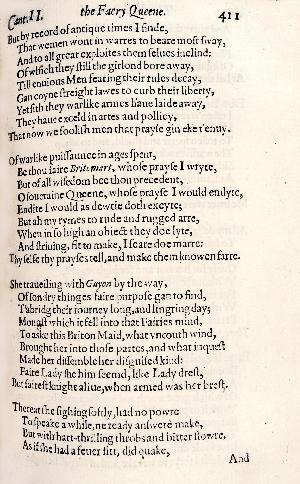 Cant. II. the Faery Queene. 411
But by record of antique times I finde,
That wemen wont in warres to beare most sway,
And to all great exploites them selues inclind:
Of which they still the girlond bore away,
Till enuious Men fearing their rules decay,
Gan coyne streight lawes to curb their liberty,
Yet sith they warlike armes haue laide away,
They haue exceld in artes and pollicy,
That now we foolish men that prayse gin eke t'enuy.
Of warlike puissaunce in ages spent,
Be thou faire Britomart, whose prayse I wryte,
But of all wisedom bee thou precedent,
O soueraine Queene, whose prayse I would endyte,
Endite I would as dewtie doth excyte;
But ah my rymes to rude and rugged arre,
When in so high an obiect they doe lyte,
And striuing, fit to make, I feare doe marre:
Thy selfe thy prayses tell, and make them knowen farre.
She traueiling with Guyon by the way,
Of sondry thinges faire purpose gan to find,
T'abridg their iourney long, and lingring day;
Mongst which it fell into that Fairies mind,
To aske this Briton Maid, what vncouth wind,
Brought her into those partes, and what inquest
Made her dissemble her disguised kind:
Faire Lady she him seemd, like Lady drest,
But fairest knight aliue, when armed was her brest.
Thereat she sighing softly, had no powre
To speake a while, ne ready answere make,
But with hart-thrilling throbs and bitter stowre,
As if she had a feuer fitt, did quake,
And